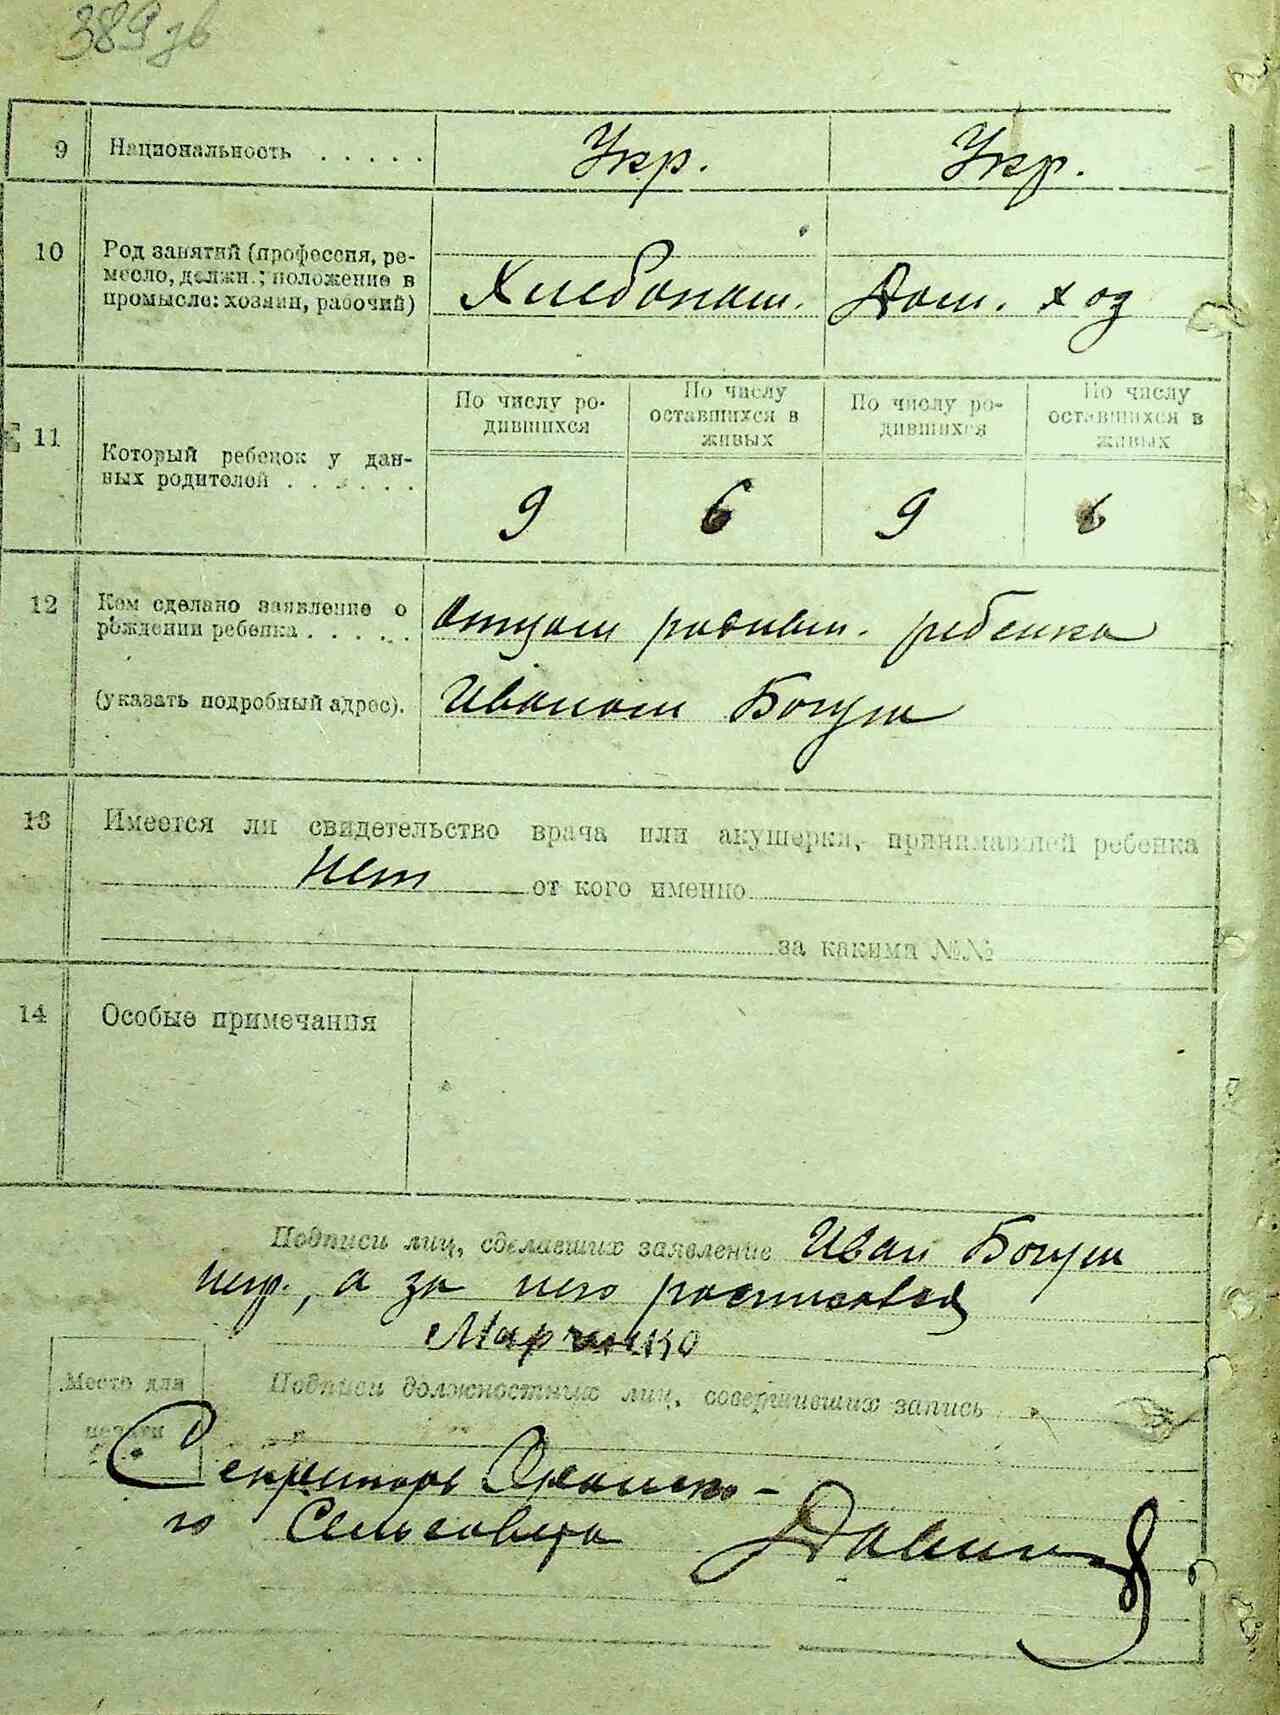 389 зв
9 Национальность . . . . . Укр. Укр.
10 Род занятий (профессия, ре-
месло, должн.; положение в
промысле: хозяин, рабочий)
Хлебопаш. Дом. ход
11 Который ребенок у дан-
ных родителей . . . . . .
По числу ро-
дившихся
По числу
оставшихся в
живых
По числу ро-
дившихся
По числу
оставшихся в
живых
9 6 9 6
12 Кем сделано заявление о
рождении ребенка . . . . .
(указать подробный адрес).
Отцом ребенка
Иваном Богуш
13 Имеется ли свидетельство врача или акушерки, принимавшей ребенка
нет от кого именно
за каким №№
14 Особые примечания
Подписи лиц, сделавших заявление Иван Богуш
негр., а за него росписався
Марченко
Место для
печати
Подписи должностных лиц, совершивших запись
Секретарь
го Сельсовета